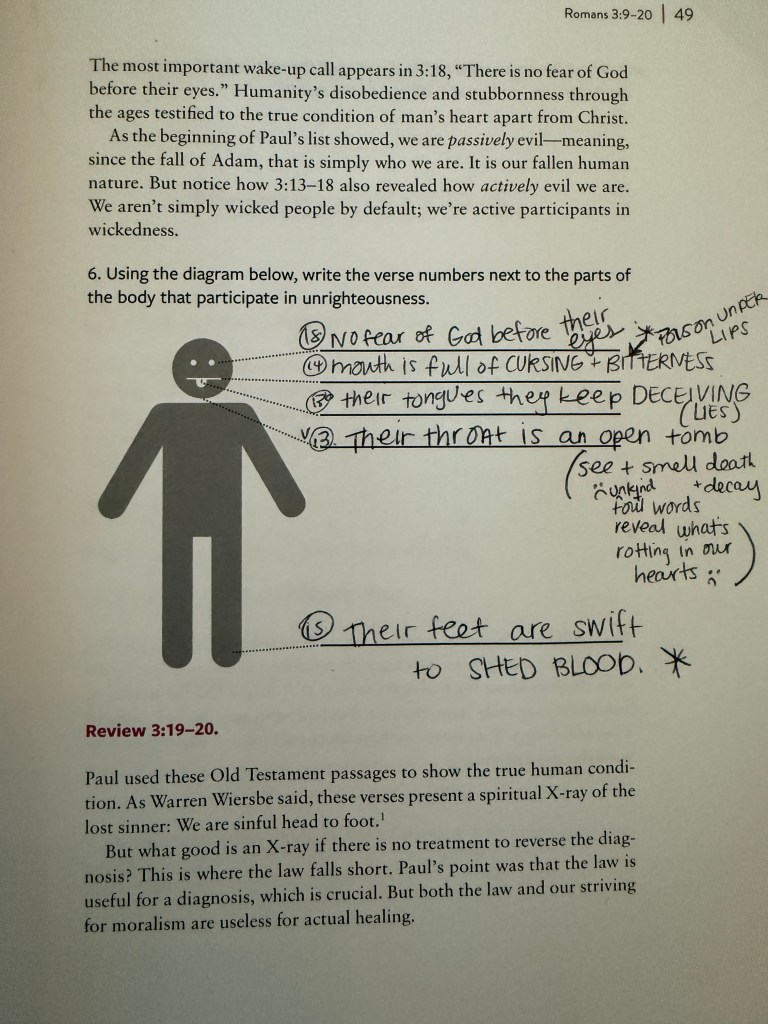 Romans 3:9–20 | 49
The most important wake-up call appears in 3:18, “There is no fear of God
before their eyes.” Humanity’s disobedience and stubbornness through
the ages testified to the true condition of man’s heart apart from Christ.
As the beginning of Paul’s list showed, we are passively evil—meaning,
since the fall of Adam, that is simply who we are. It is our fallen human
nature. But notice how 3:13–18 also revealed how actively evil we are.
We aren’t simply wicked people by default; we’re active participants in
wickedness.
6. Using the diagram below, write the verse numbers next to the parts of
the body that participate in unrighteousness.
18 No fear of God before their eyes
* POISON UNDER
LIPS
14 mouth is full of CURSING + BITTERNESS
their tongues they keep DECEIVING
(LIES)
13. Their throat is an open tomb
(see + smell death
+ decay
unkind
foul words
reveal what's
rotting in our
hearts :( )
15 Their feet are swift
to SHED BLOOD. *
Review 3:19–20.
Paul used these Old Testament passages to show the true human condi-
tion. As Warren Wiersbe said, these verses present a spiritual X-ray of the
lost sinner: We are sinful head to foot.1
But what good is an X-ray if there is no treatment to reverse the diag-
nosis? This is where the law falls short. Paul’s point was that the law is
useful for a diagnosis, which is crucial. But both the law and our striving
for moralism are useless for actual healing.